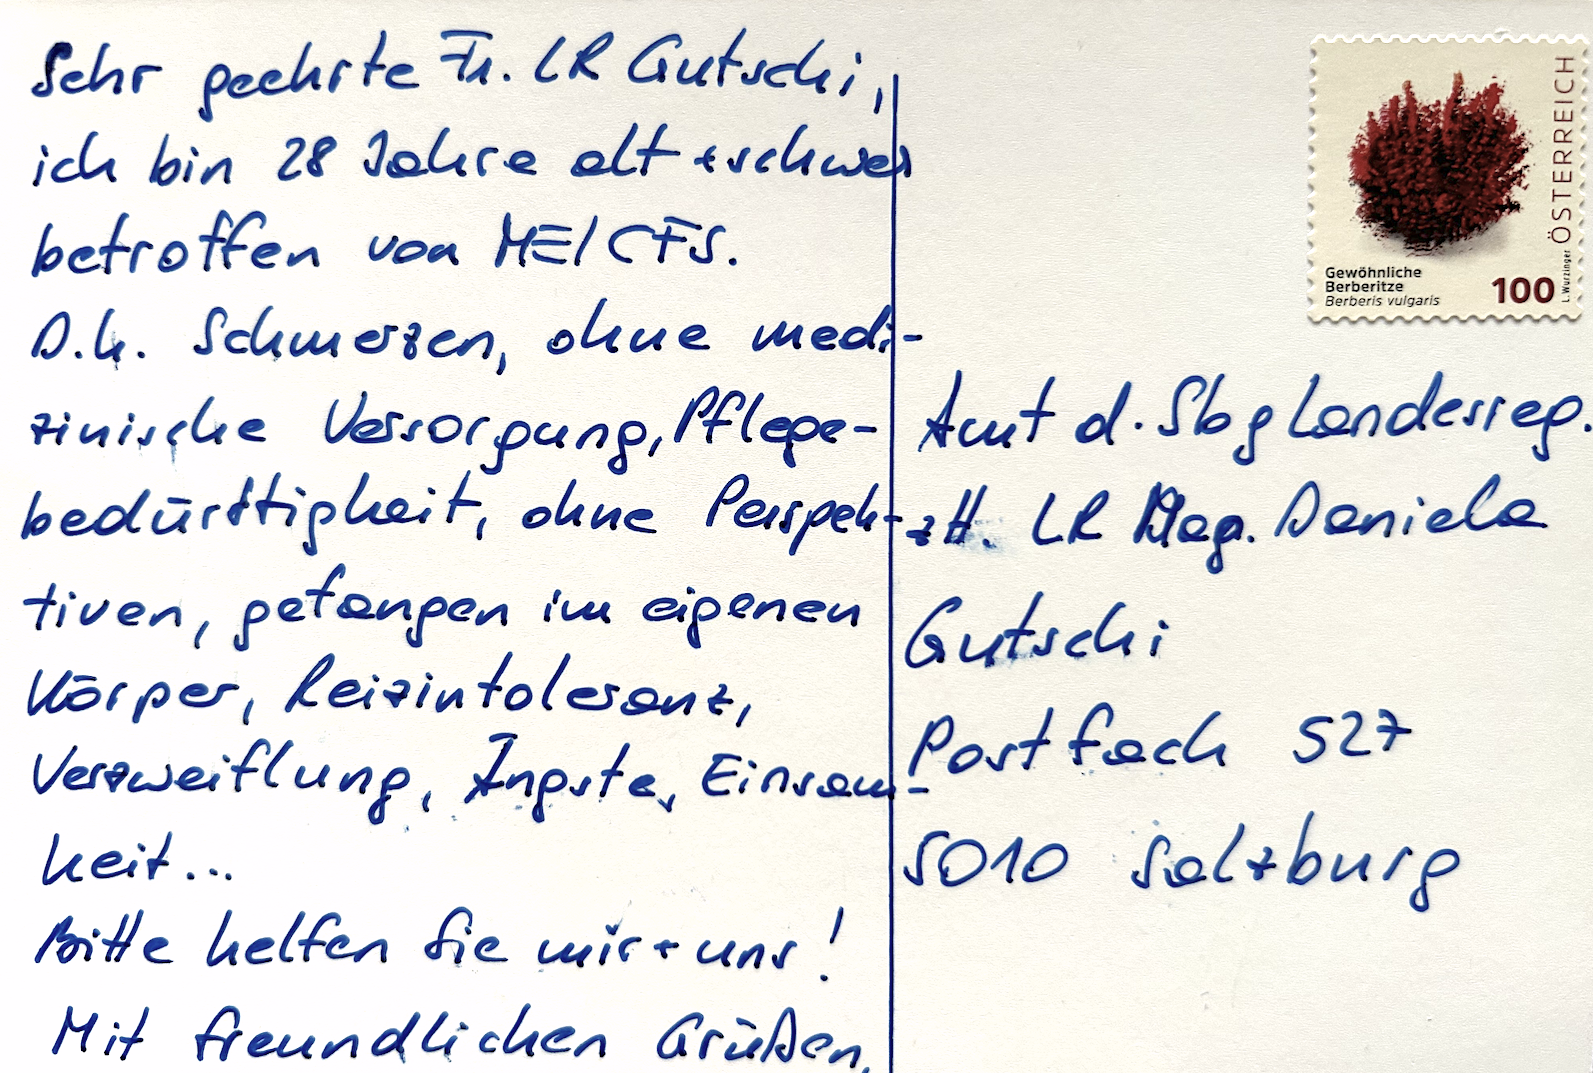 Sehr geehrte Fr. LR Gutschi,
ich bin 28 Jahre alt + schwer
betroffen von ME/CFS.
D.h. Schmerzen, ohne medi-
zinische Versorgung, Pflege-
bedürftigkeit, ohne Perspek-
tiven, gefangen im eigenen
Körper, Reizintoleranz,
Verzweiflung, Ängste, Einsam-
keit...
Bitte helfen Sie mir + uns!
Mit freundlichen Grüßen,
ÖSTERREICH
L. Wurzinger
Gewöhnliche
Berberitze
Berberis vulgaris
100
Amt d. Sbg Landesreg.
zH. LR Mag. Daniela
Gutschi
Postfach 527
5010 Salzburg